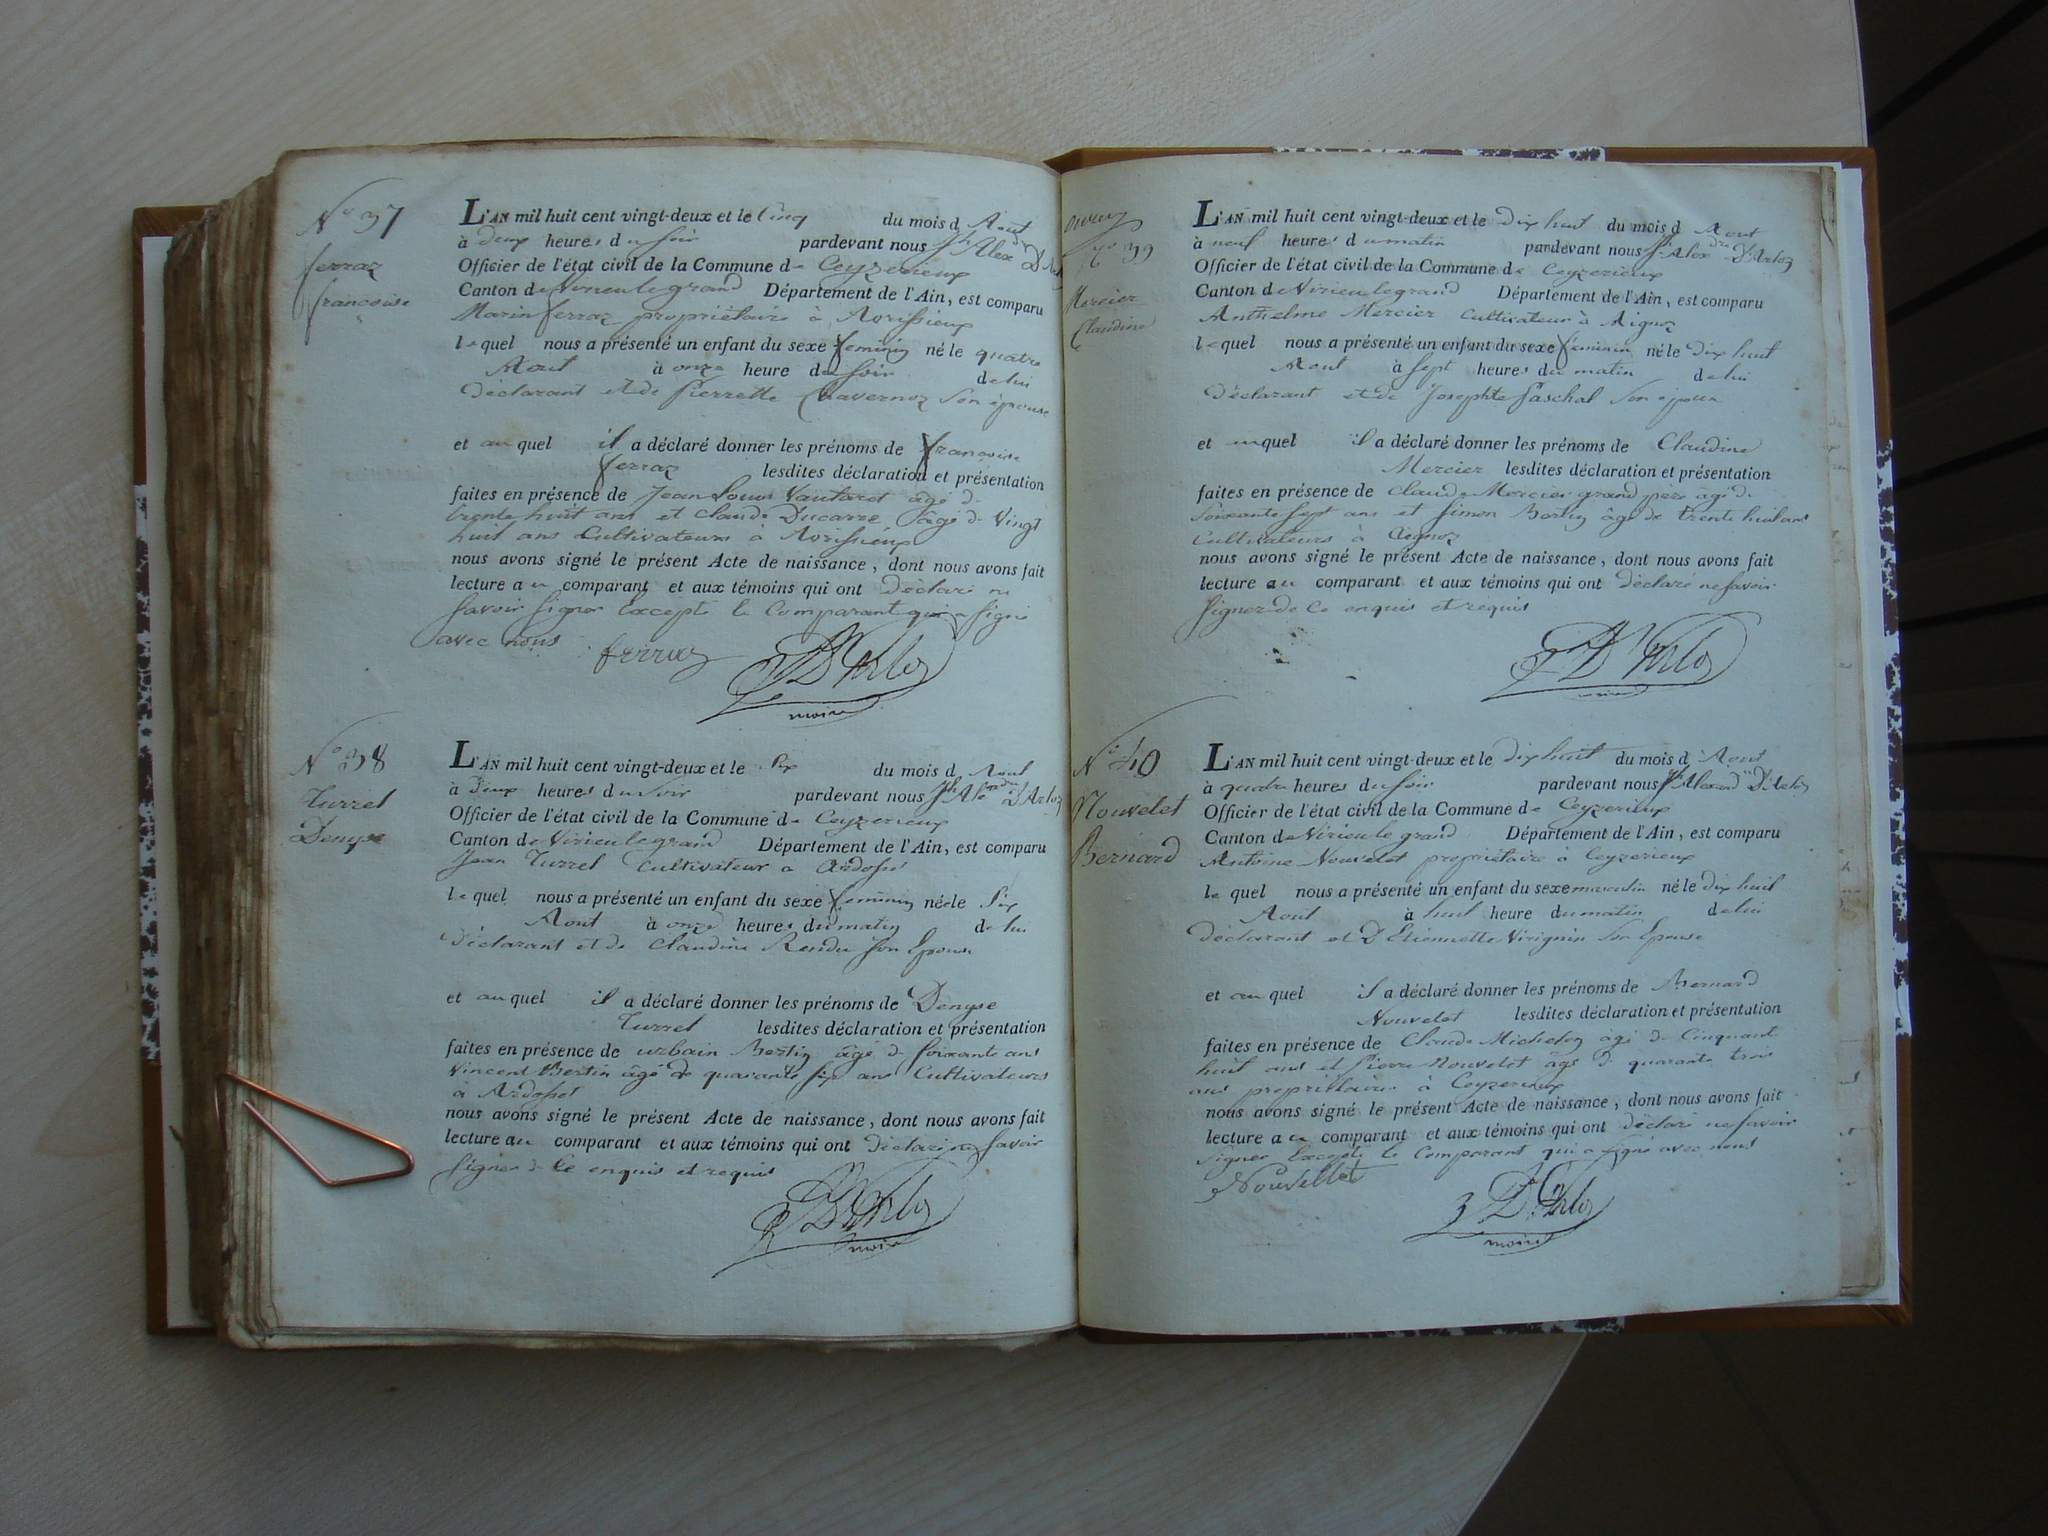 N° 37
ferraz
françoise
L'AN mil huit cent vingt-deux et le Cinq du mois d Aout
à deux heures du soir pardevant nous Jh Alex
Officier de l'état civil de la Commune de Ceyzerieux
Canton de Virieu le grand Département de l'Ain, est comparu
Marin ferraz propriétaire à Avrissieux
lequel nous a présenté un enfant du sexe feminin né le quatre
Aout à onze heure du soir de lui
Déclarant et de Pierrette Chavernoz son épouse
et auquel il a déclaré donner les prénoms de françoise
ferraz lesdites déclaration et présentation
faites en présence de Jean Louis Vautaret âgé de
trente huit ans et Claude Ducarre âgé de Vingt
huit ans Cultivateurs à Avrissieux
nous avons signé le présent Acte de naissance, dont nous avons fait
lecture au comparant et aux témoins qui ont Déclaré ne
Savoir signer Excepté le Comparant qui a signé
avec nous ferraz D'Arloz
maire
N° 38
Turrel
Denyse
L'AN mil huit cent vingt-deux et le Six du mois d Aout
à Deux heures du soir pardevant nous Jh Alexdre D'Arloz
Officier de l'état civil de la Commune de Ceyzerieux
Canton de Virieu le grand Département de l'Ain, est comparu
Jean Turrel Cultivateur a Ardosset
lequel nous a présenté un enfant du sexe feminin né le Six
Aout à onze heures du matin de lui
Déclarant et de Claudine Rendu son Epouse
et auquel il a déclaré donner les prénoms de Denyse
Turrel lesdites déclaration et présentation
faites en présence de urbain Bertin âgé de soixante ans
Vincent Bertin âgé de quarante six ans Cultivateurs
à Ardosset
nous avons signé le présent Acte de naissance, dont nous avons fait
lecture au comparant et aux témoins qui ont Déclaré ne Savoir
signer de Ce enquis et requis
D'Arloz
maire
N° 39
Mercier
Claudine
L'AN mil huit cent vingt-deux et le Dix huit du mois d Aout
à neuf heures du matin pardevant nous Jh Alexdre D'Arloz
Officier de l'état civil de la Commune de Ceyzerieux
Canton de Virieu le grand Département de l'Ain, est comparu
Anthelme Mercier Cultivateur à Aignoz
lequel nous a présenté un enfant du sexe feminin né le Dix huit
Aout à sept heures du matin de lui
Déclarant et de Josephte Paschal son épouse
et auquel il a déclaré donner les prénoms de Claudine
Mercier lesdites déclaration et présentation
faites en présence de Claude Mercier grand père âgé de
soixante sept ans et Simon Bertin âgé de trente huit ans
Cultivateurs à Aignoz
nous avons signé le présent Acte de naissance, dont nous avons fait
lecture au comparant et aux témoins qui ont Déclaré ne savoir
signer de Ce enquis et requis
D'Arloz
maire
N° 40
Nouvelet
Bernard
L'AN mil huit cent vingt-deux et le Dix huit du mois d Aout
à quatre heures du soir pardevant nous Jh Alexandre D'Arloz
Officier de l'état civil de la Commune de Ceyzerieux
Canton de Virieu le grand Département de l'Ain, est comparu
Antoine Nouvelet propriétaire à Ceyzerieux
lequel nous a présenté un enfant du sexe masculin né le Dix huit
Aout à huit heure du matin de lui
Déclarant et D Etiennette Virignin son Epouse
et auquel il a déclaré donner les prénoms de Bernard
Nouvelet lesdites déclaration et présentation
faites en présence de Claude Michelon âgé de Cinquante
huit ans et Pierre Nouvelet âgé de quarante trois
ans propriétaires à Ceyzerieux
nous avons signé le présent Acte de naissance, dont nous avons fait
lecture au comparant et aux témoins qui ont déclaré ne savoir
signer Excepté le Comparant qui a signé avec nous
Nouvellet D'Arloz
maire